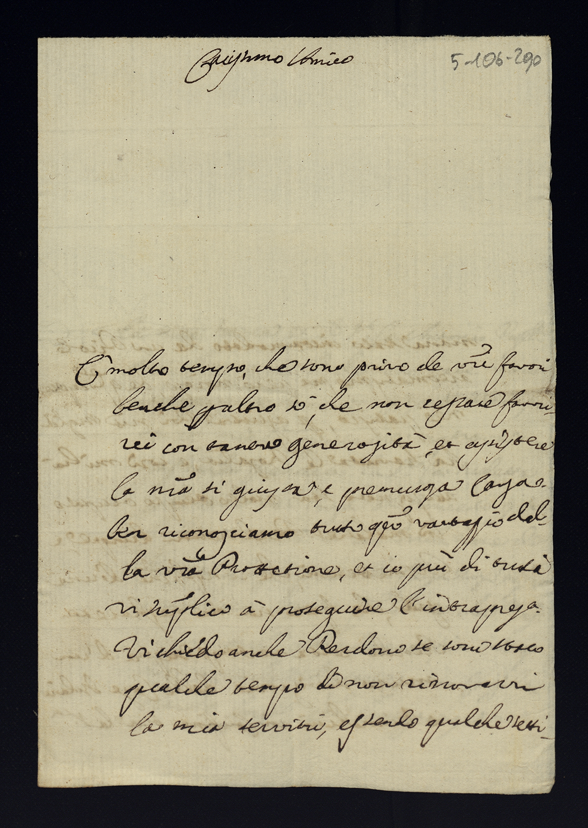 Cariss.mo Amico
5-106-290
È molto tempo, che sono privo de vri favori
benche per altro sò, che non cessate favori
rci con tanta generosità, et assistere
la nra si giusta, e premurosa Causa.
Noi riconosciamo tutto qto vantaggio dal-
la vra Protetione, et io più di tutti
vi supplico à proseguire l'intrapresa.
Vi chiedo anche Perdono se sono stato
qualche tempo di non rinovarvi
la mia servitù, essendo qualche setti-